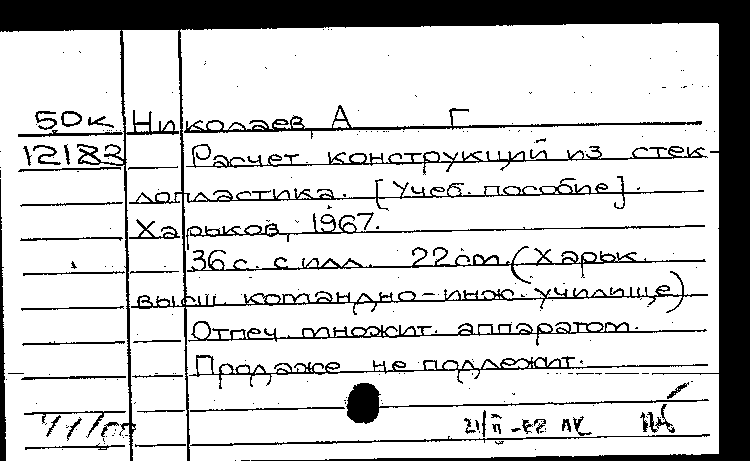 50к Николаев, А Г
12183 Расчет конструкций из стек-
лопластика. [Учеб. пособие].
Харьков, 1967.
36 с. с илл. 22 см. (Харьк.
высш. командно-инж. училище)
Отпеч. множит. аппаратом.
Продаже не подлежит.
21/II-68